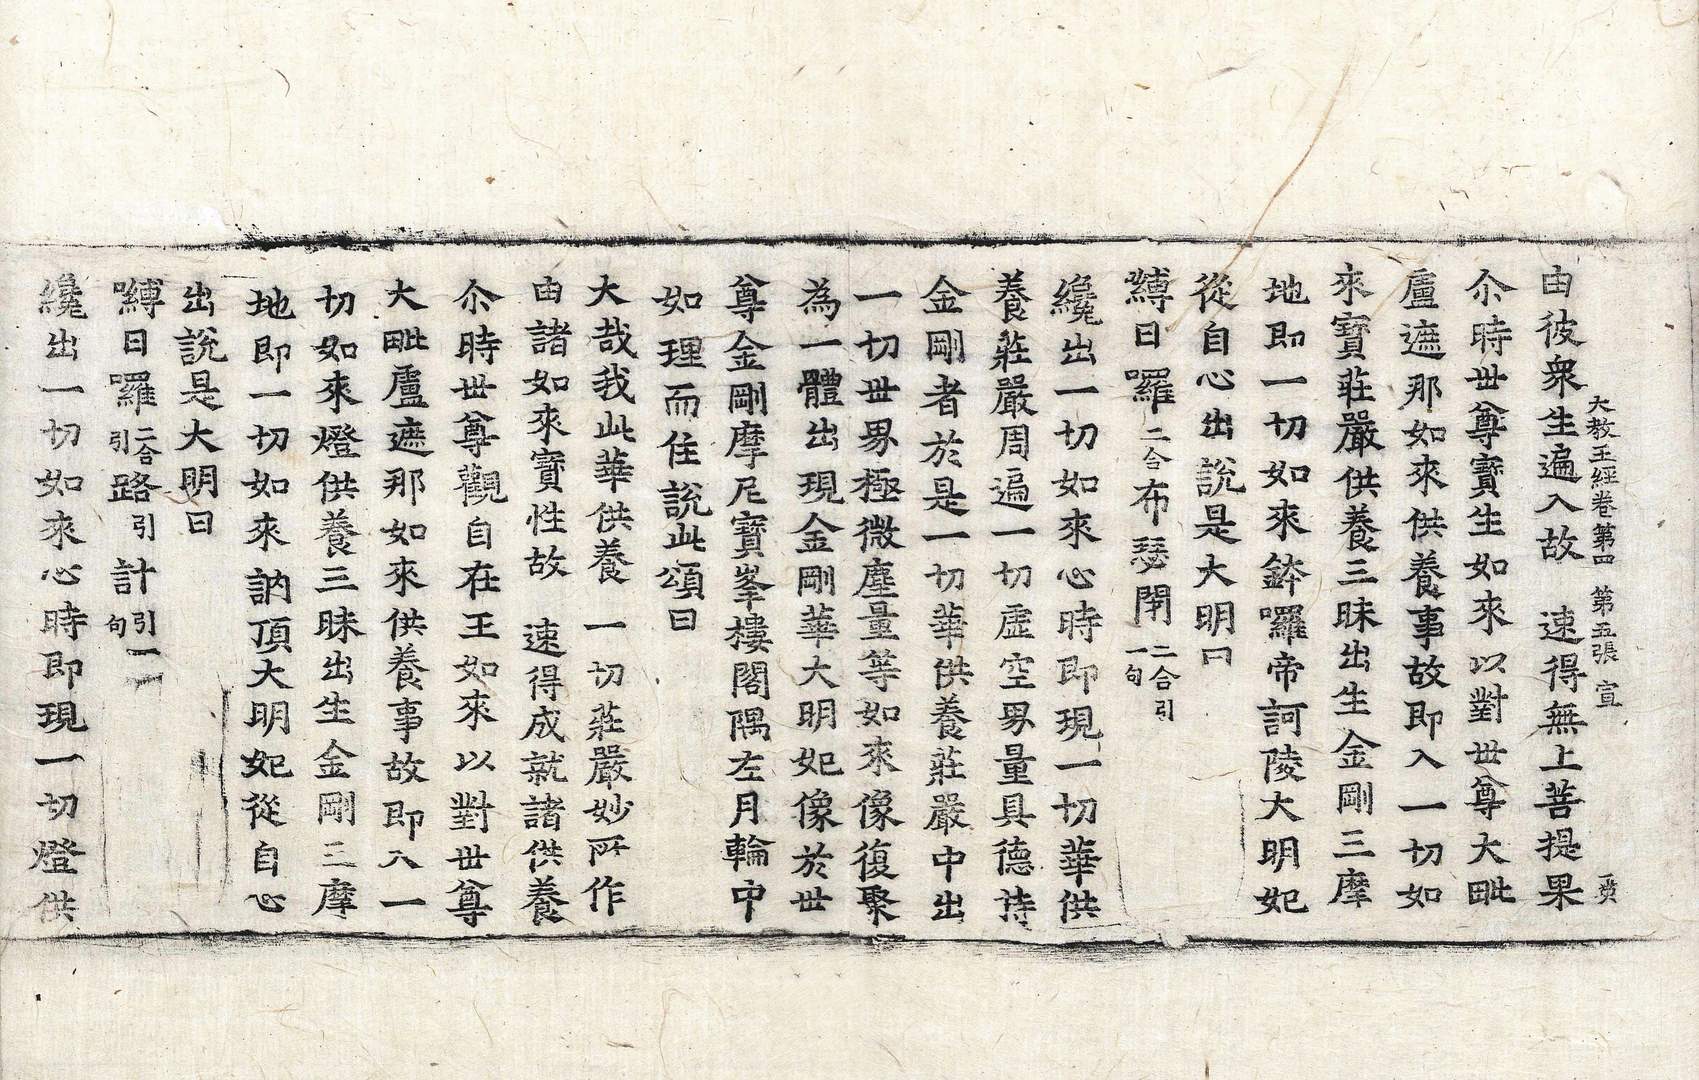 大教王經卷第四　第五張　宣
由彼衆生遍入故　速得無上菩提果
尒時世尊寶生如來以對世尊大毗
盧遮那如來供養事故即入一切如
來寶莊嚴供養三昧出生金剛三摩
地即一切如來鉢囉帝訶陵大明妃
從自心出說是大明曰
嚩日囉二合布瑟閇二合引一句
纔出一切如來心時即現一切華供
養莊嚴周遍一切虛空界量具德持
金剛者於是一切華供養莊嚴中出
一切世界極微塵量等如來像復聚
為一體出現金剛華大明妃像於世
尊金剛摩尼寶峯樓閣隅左月輪中
如理而住說此頌曰
大哉我此華供養　一切莊嚴妙所作
由諸如來寶性故　速得成就諸供養
尒時世尊觀自在王如來以對世尊
大毗盧遮那如來供養事故即入一
切如來燈供養三昧出生金剛三摩
地即一切如來訥頂大明妃從自心
出說是大明曰
嚩日囉二合引路引計引一句
纔出一切如來心時即現一切燈供